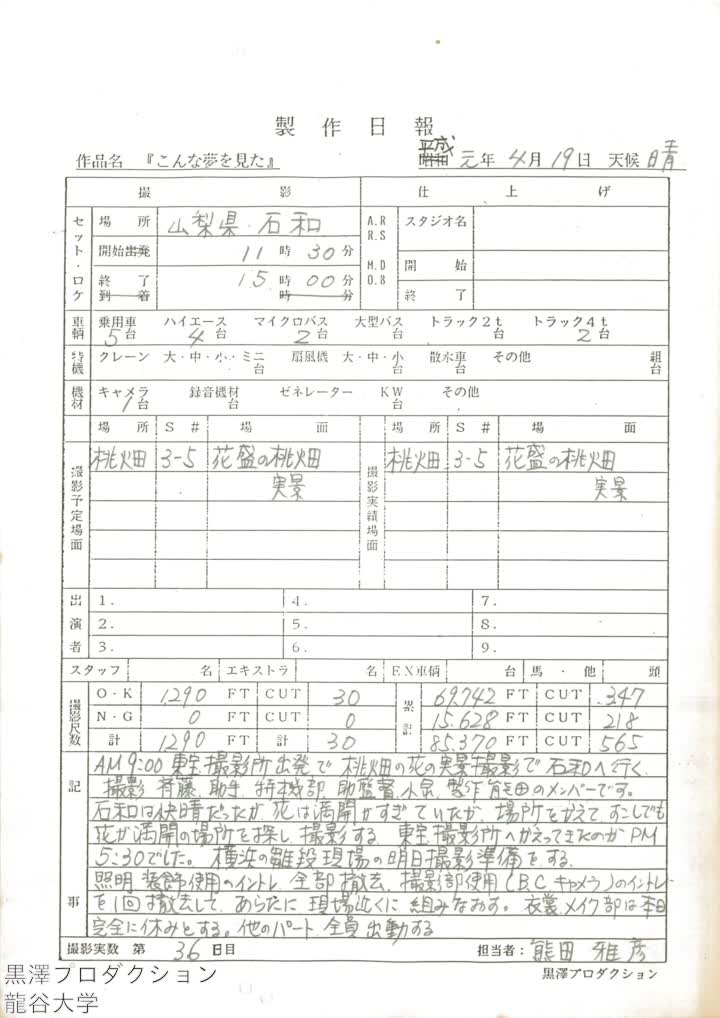 製作日報
作品名 『こんな夢を見た』 昭和 平成 元年 4月 19日 天候 晴
撮影 仕上げ
セット・ロケ 場所 山梨県 石和 A.R R.S スタジオ名
開始出発 11時30分
終了 15時00分 M.D O.B 開始
到着 時 分 終了
車輌 乗用車 5台 ハイエース 4台 マイクロバス 2台 大型バス トラック2t トラック4t 2台
特機 クレーン 大・中・小・ミニ 台 扇風機 大・中・小 台 散水車 台 その他 組 台
機材 キャメラ 1台 録音機材 台 ゼネレーター KW 台 その他
場所 S# 場面 場所 S# 場面
撮影予定場面 桃畑 3-5 花盛の桃畑 実景 撮影実績場面 桃畑 3-5 花盛の桃畑 実景
出演者 1. 4. 7.
2. 5. 8.
3. 6. 9.
スタッフ 名 エキストラ 名 EX車輌 台 馬・他 頭
撮影尺数 O・K 1,290 FT CUT 30 累計 69,742 FT CUT 347
N・G 0 FT CUT 0 15,628 FT CUT 218
計 1290 FT 計 30 85,370 FT CUT 565
記事
AM9:00 東宝撮影所出発で 桃畑の花の実景撮影で 石和へ行く
撮影 斉藤、助手、特機部、助監督 小泉、製作 熊田のメンバーです。
石和は快晴だったが、花は満開がすぎていたが、場所をかえて、すこしでも
花が満開の場所を探し、撮影する。東宝撮影所へかえってきたのがPM
5:30でした。 横浜の雛段現場の明日撮影準備をする。
照明 装飾使用のイントレ、全部撤去、撮影部使用(B.C.キャメラ)のイントレ
を1回撤去して、あらたに現場近くに組みなおす。衣裳、メイク部は本日
完全に休みとする。他のパート、全員出動する
撮影実数 第 36 日目 担当者: 熊田 雅彦
黒澤プロダクション
黒澤プロダクション
龍谷大学